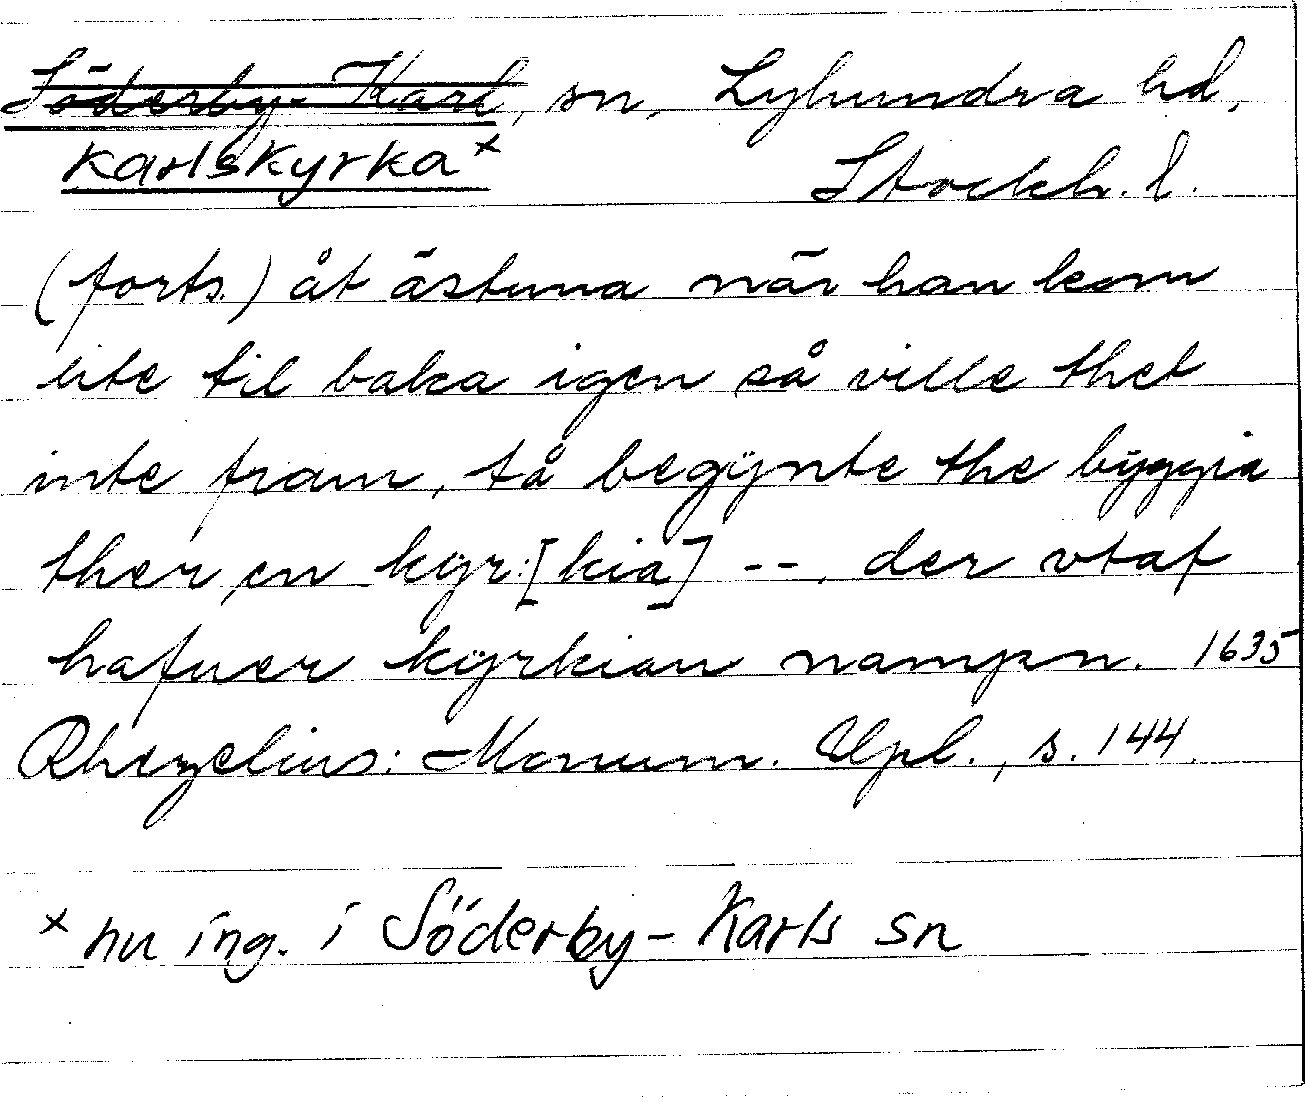 Söderby-Karl, sn, Lyhundra hd,
Karlskyrka x Stockh. l.
(forts.) åt ästuna när han kom
lite til baka igen så ville thet
inte fram, tå begÿnte the bÿggia
ther en kÿr:[kia] --, der vtaf
hafuer kÿrkian nampn. 1635
Rhezelius: Monum. Upl., s. 144.
x nu ing. i Söderby-Karls sn